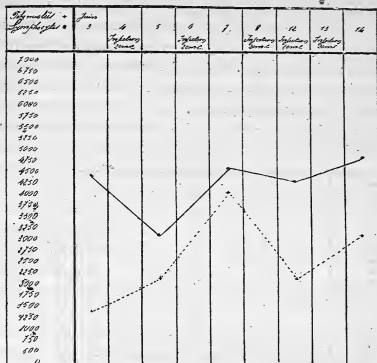 Polynucléés +
Lymphocytes •
Juin
3
4
Injection
5
6
Injection
7
8
Injection
12
Injection
13
Injection
14
7000
6750
6500
6250
6000
5750
5500
5250
5000
4750
4500
4250
4000
3750
3500
3250
3000
2750
2500
2250
2000
1750
1500
1250
1000
750
500
0